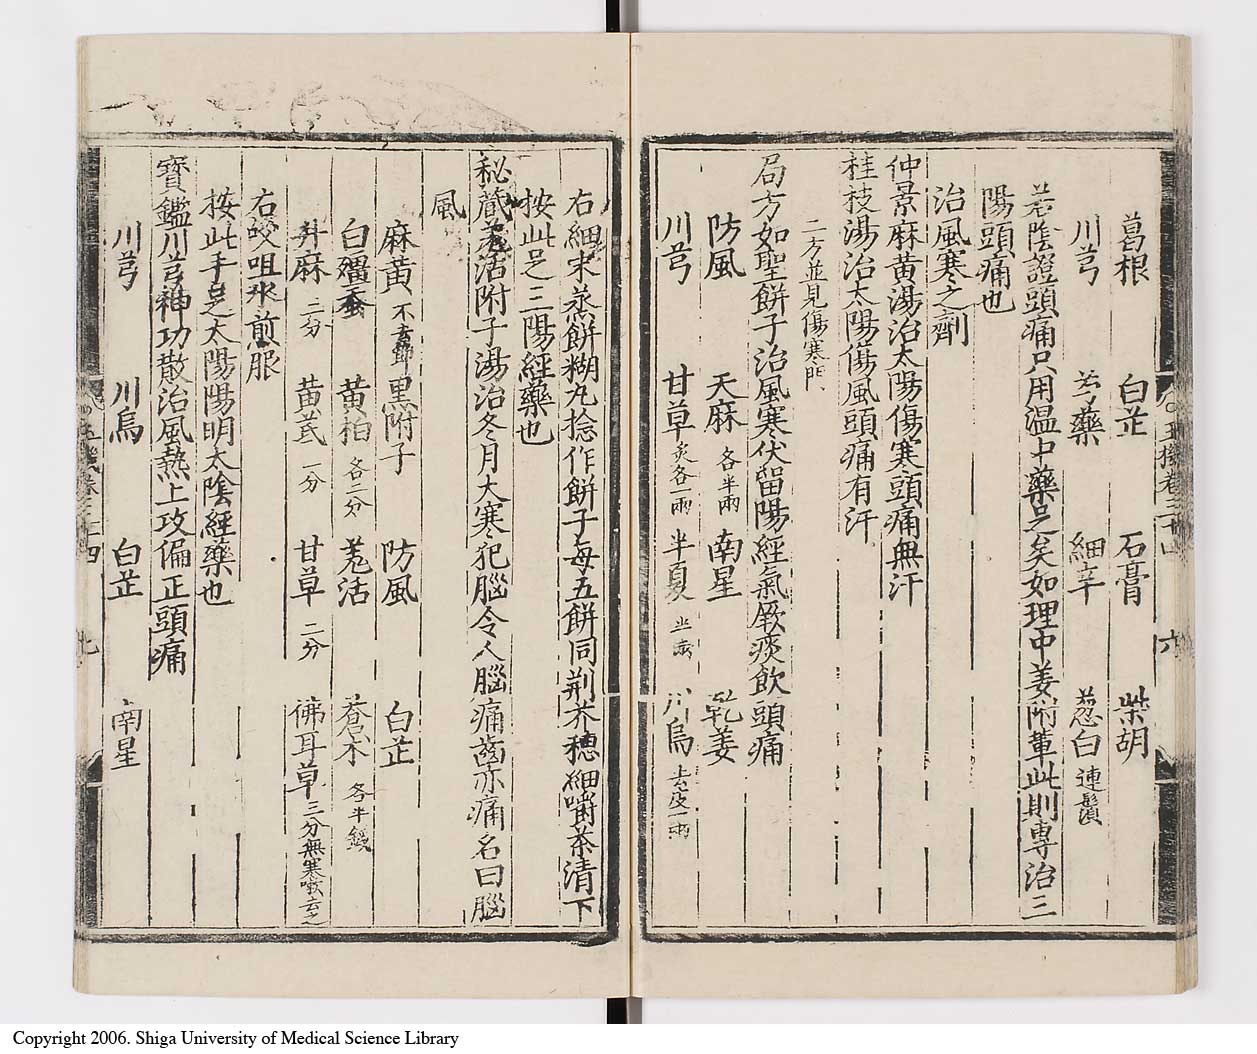 葛根 白芷 石膏 柴胡
川芎 芍藥 細辛 葱白連鬚
若陰證頭痛只用温中藥足矣如理中姜附輩此則専治三
陽頭痛也
治風寒之劑
仲景麻黄湯治太陽傷寒頭痛無汗
桂枝湯治太陽傷風頭痛有汗
二方並見傷寒門
局方如聖餅子治風寒伏留陽經氣厥痰飲頭痛
防風 天麻各半兩 南星 乾姜
川芎 甘草炙各一兩 半夏 川烏去皮一兩
右細末蒸餅糊丸捻作餅子毎五餅同荆芥穂細嚼茶清下
按此足三陽經藥也
秘蔵羌活附子湯治冬月大寒犯腦令人腦痛齒亦痛名曰腦
風
麻黄不去節 黒附子 防風 白芷
白殭蚕 黄柏各三分 羌活 蒼朮各半錢
升麻二分 黄芪一分 甘草二分 佛耳草三分無寒嗽去之
右㕮咀水煎服
按此手足太陽陽明太陰經藥也
寳鑑川芎神功散治風熱上攻偏正頭痛
川芎 川烏 白芷 南星
玉機卷三十四
六
七
Copyright 2006. Shiga University of Medical Science Library